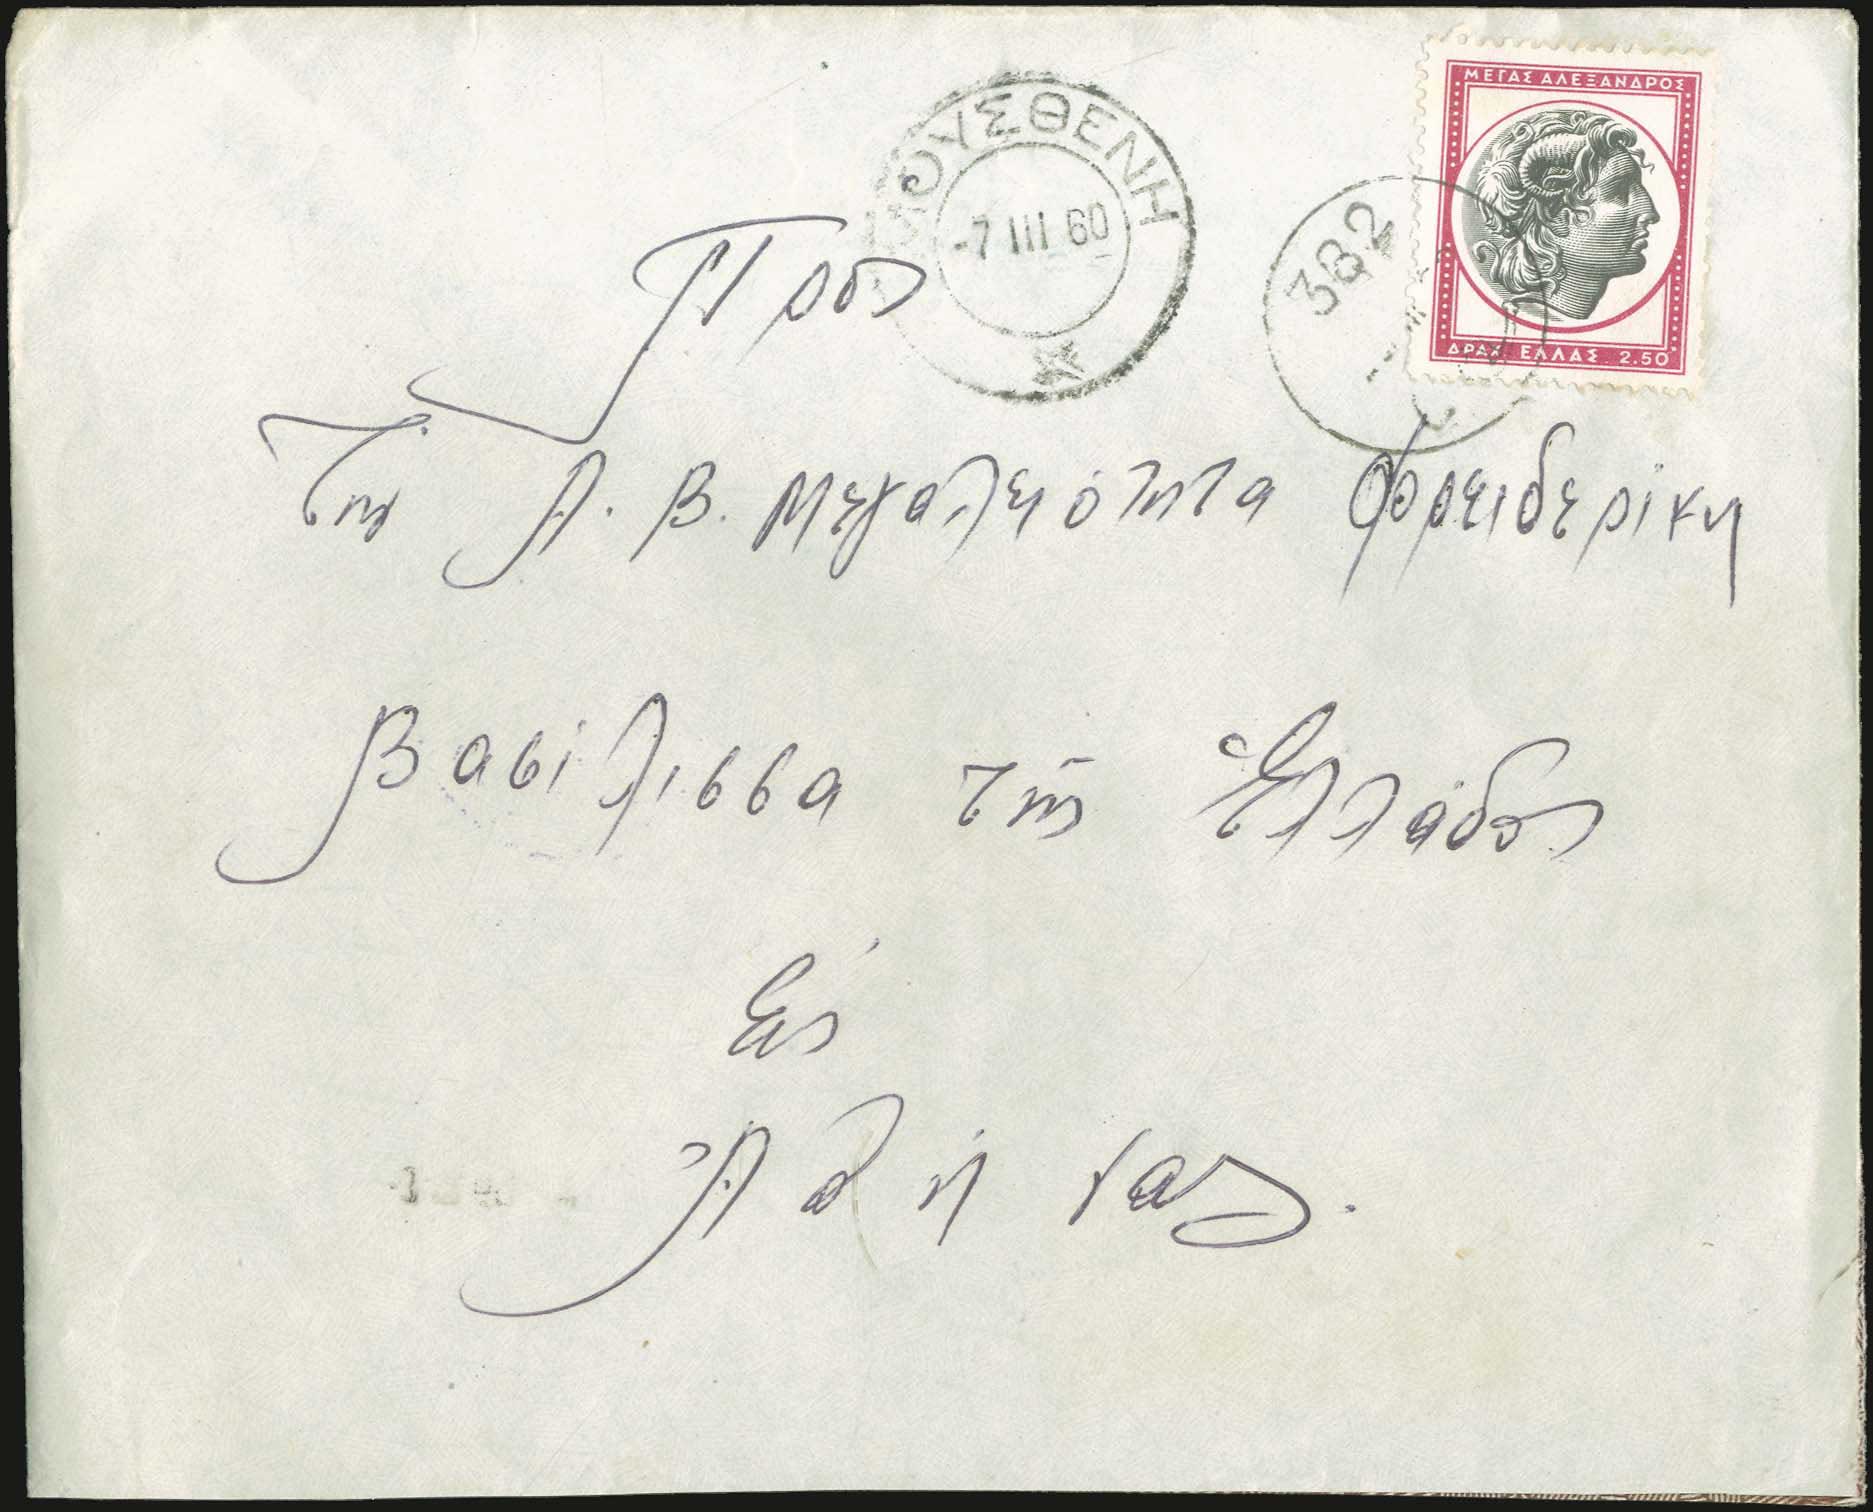 ΜΕΓΑΣ ΑΛΕΞΑΝΔΡΟΣ
ΔΡΑΧ ΕΛΛΑΣ 2.50
ΜΟΥΣΘΕΝΗ
-7 III 60
382
Προς
Την Α. Β. Μεγαλειότητα Φρειδερίκη
Βασίλισσα τῆς Ἑλλάδος
Εις
Ἀθήνας.